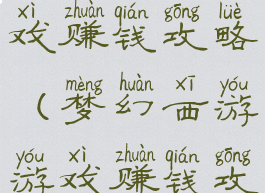 xì zhuàn qián gōng lüè
戏赚钱攻略
mèng huàn xī yóu
（梦幻西游
yóu xì zhuàn qián gōng
游戏赚钱攻